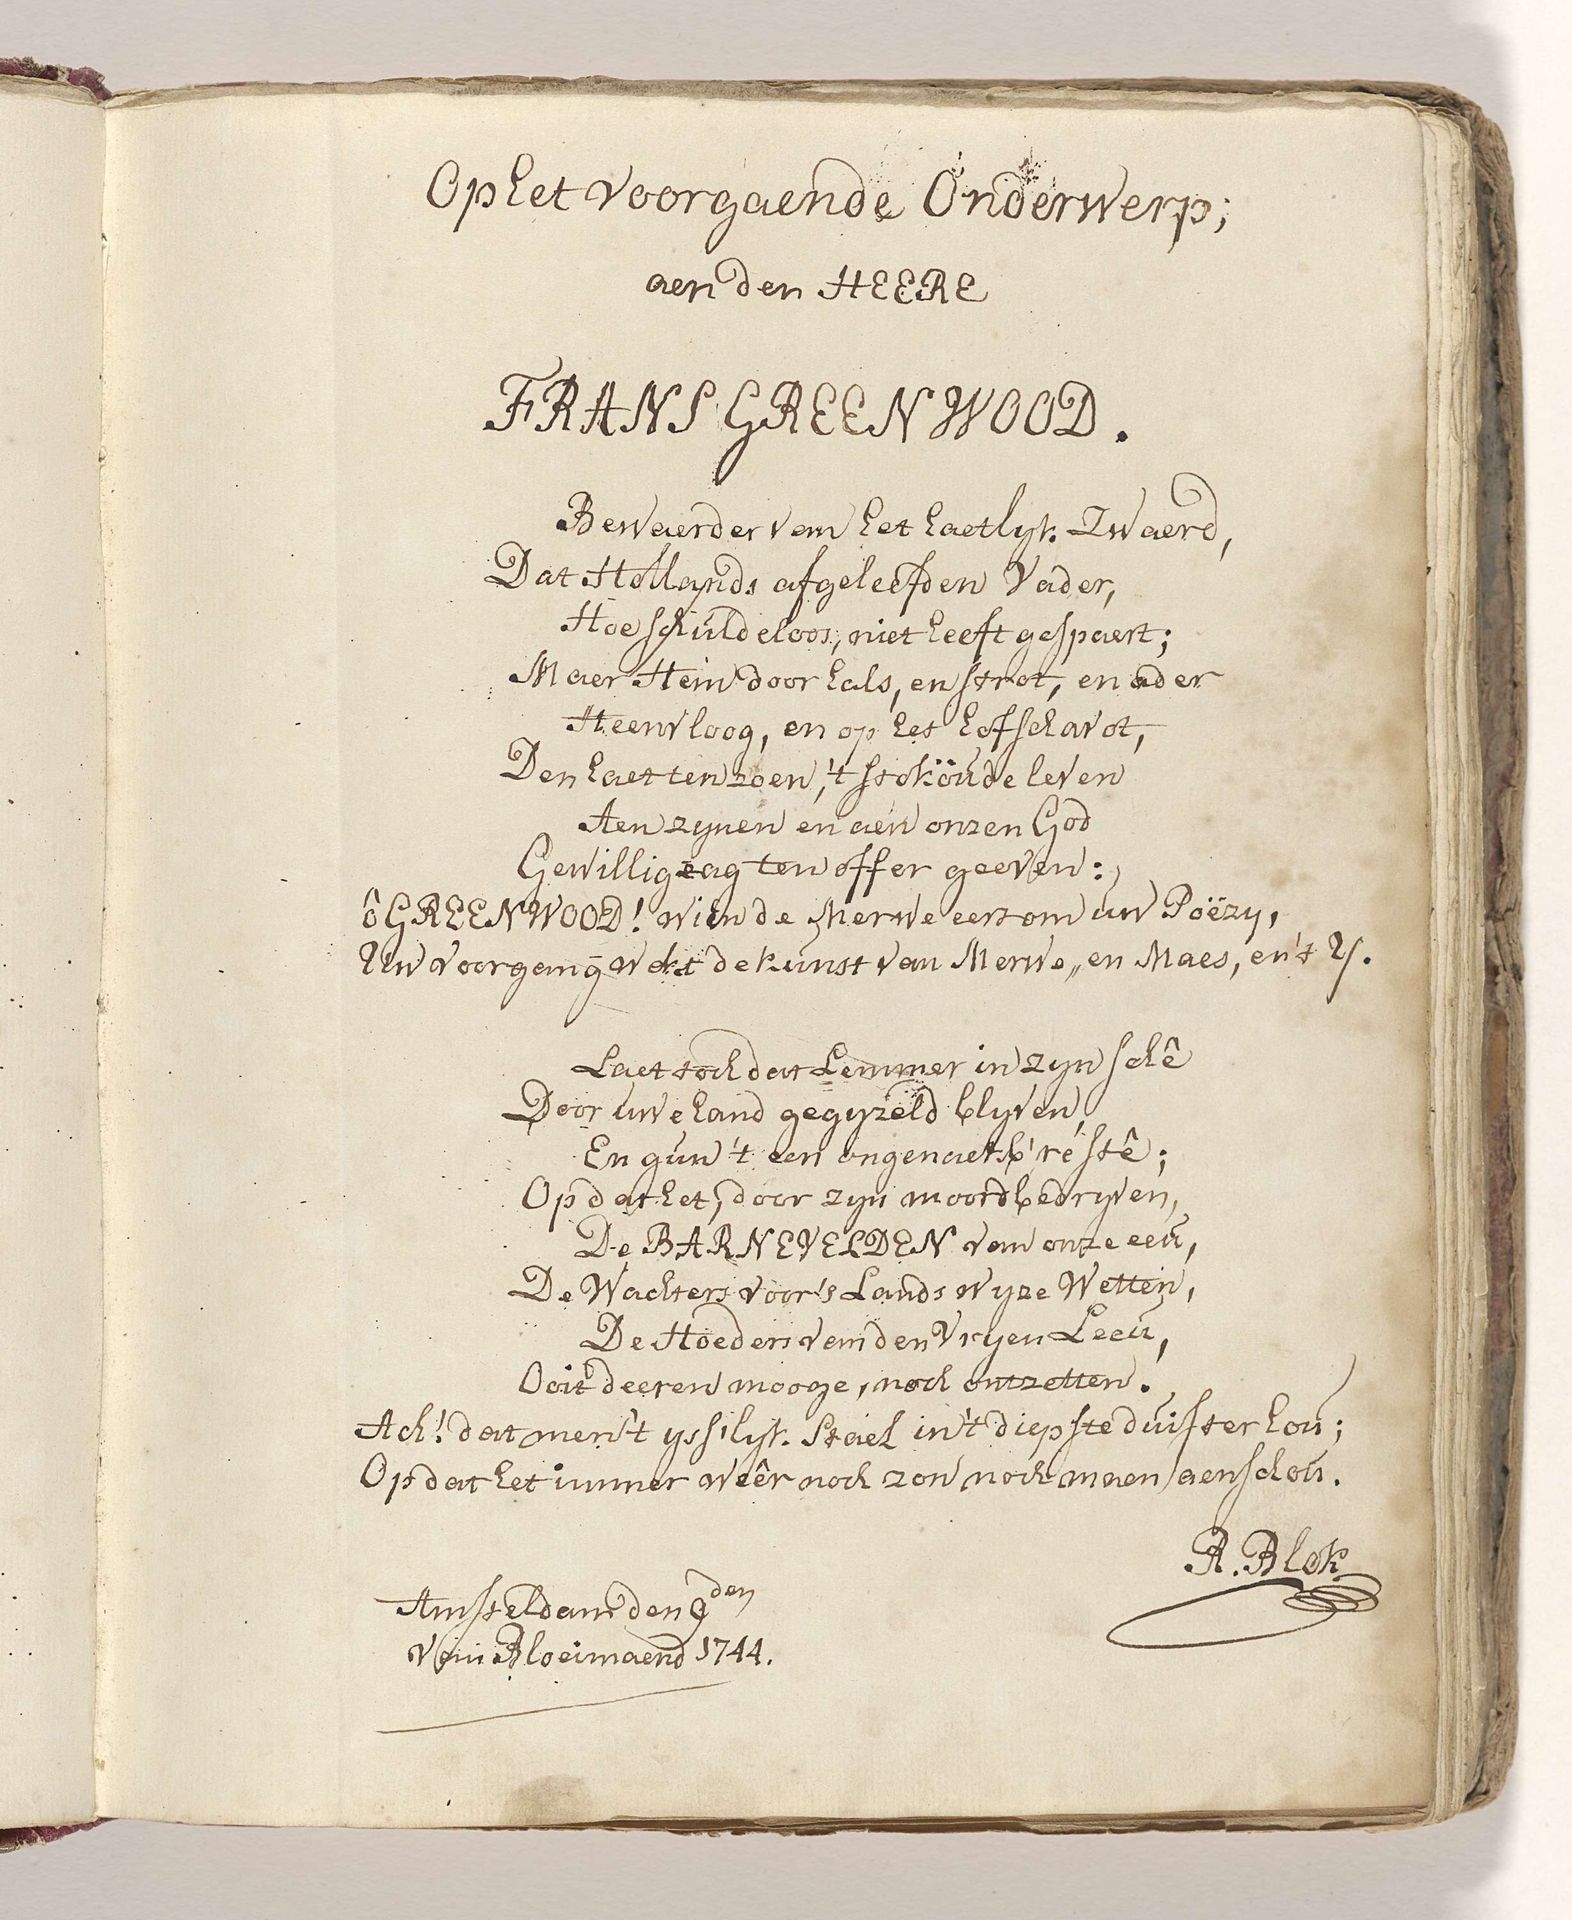 Op het voorgaende Onderwerp;
aen den HEERE
FRANS GREENWOOD.
Bewaerder van het haetlyk Zwaerd,
Dat Hollands afgeleefden Vader,
Hoe schuldeloos, niet heeft gespaert;
Maer Hem door hals, en strot, en ader
Heenvloog, en op het hofschavot,
Den haet ten zoen, 't stokoude leven
Aen zynen en aen onzen God
Gewillig zag ten offer geeven:
ô GREENWOOD! wien de Merwe eert om uw Poëzy,
Uw voorgang wekt de kunst van Merwe, en Maes, en 't Y.
Laet toch dat Lemmer in zyn schê
Door uwe hand gegyzeld blyven,
En gun 't een ongenaekb're stê;
Op dat het, door zyn moordbedryven,
De BARNEVELDEN van onze eeu,
De Wachters voor 's Lands wyze Wetten,
De Hoeders van den Vryen Leeu,
Ooit deeren mooge, noch ontzetten.
Ach! dat men 't yss'lyk Stael in 't diepste duister hou;
Op dat het immer weêr noch zon noch maen aenschou.
R. Blok
Amsteldam den 9den
van Bloeimaend 1744.